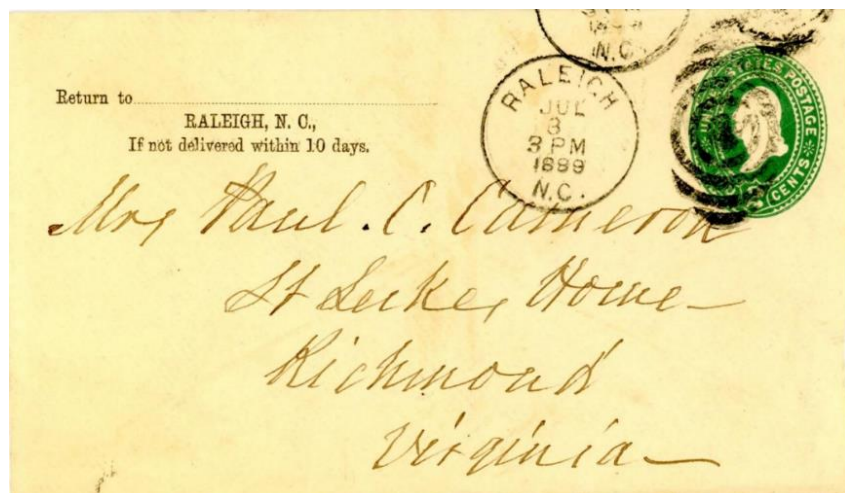 N.C.
Return to
RALEIGH, N. C.,
If not delivered within 10 days.
RALEIGH
JUL
3 PM
N.C.
UNITED STATES POSTAGE
2 CENTS
Mrs Paul. C. Cameron
St Lukes Home
Richmond
Virginia